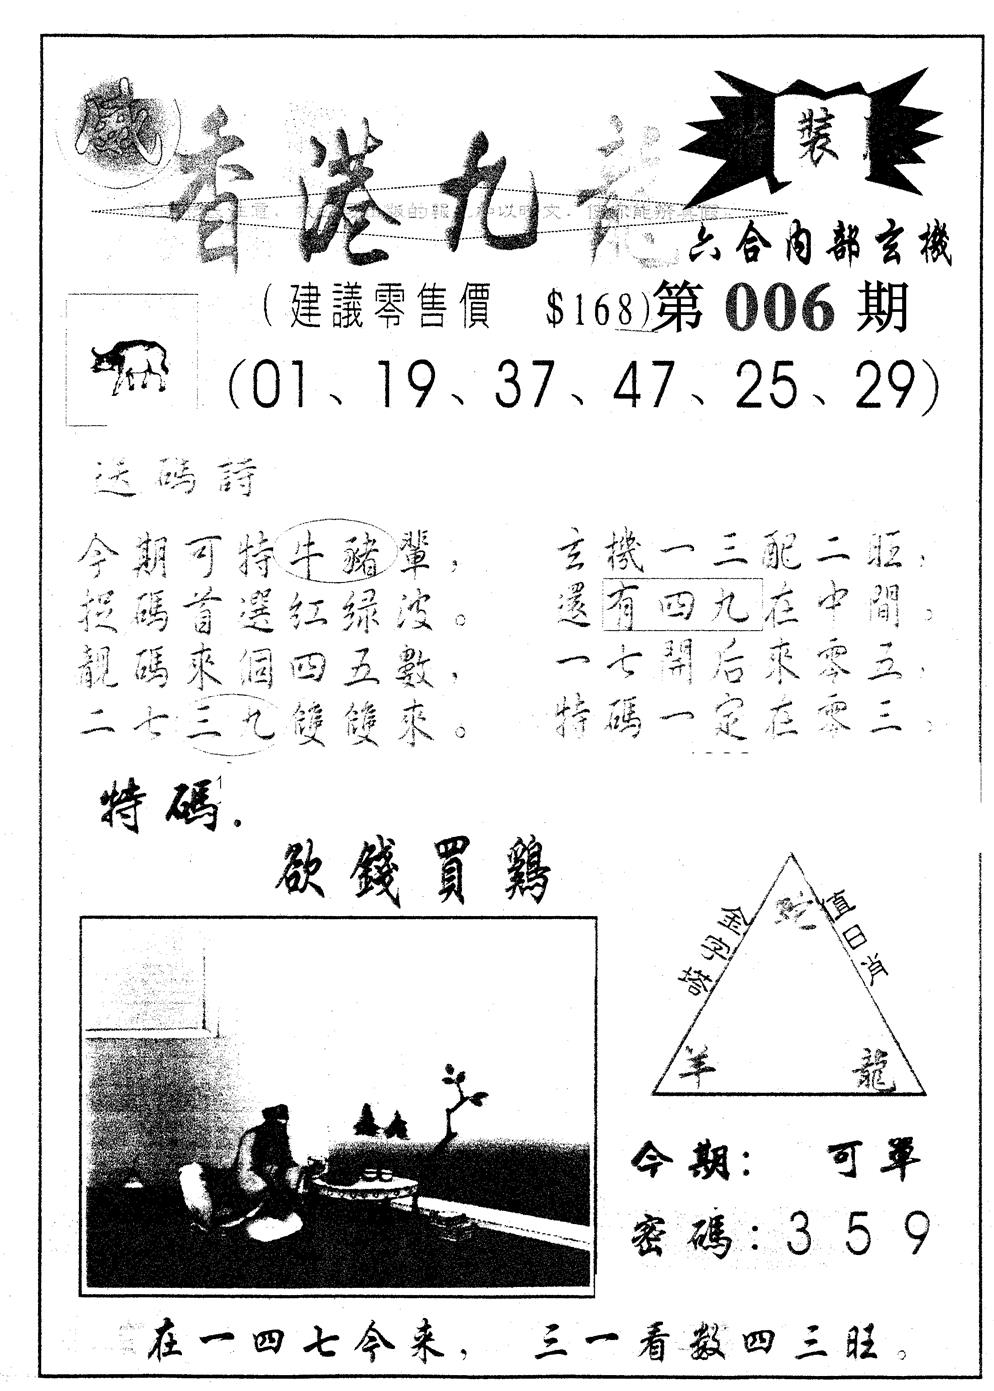 裝
香港九龍
版的報
六合內部玄機
(建議零售價 $168)第006期
(01、19、37、47、25、29)
送碼詩
今期可特牛豬輩,
捉碼首選紅绿波。
靚碼來個四五數,
二七三九雙雙來。
玄機一三配二旺,
還有四九在中間。
一七開后來零五,
特碼一定在零三。
特碼.
欲錢買鷄
金字塔
值日肖
蛇
羊
龍
今期: 可單
密碼:359
在一四七今来, 三一看数四三旺。